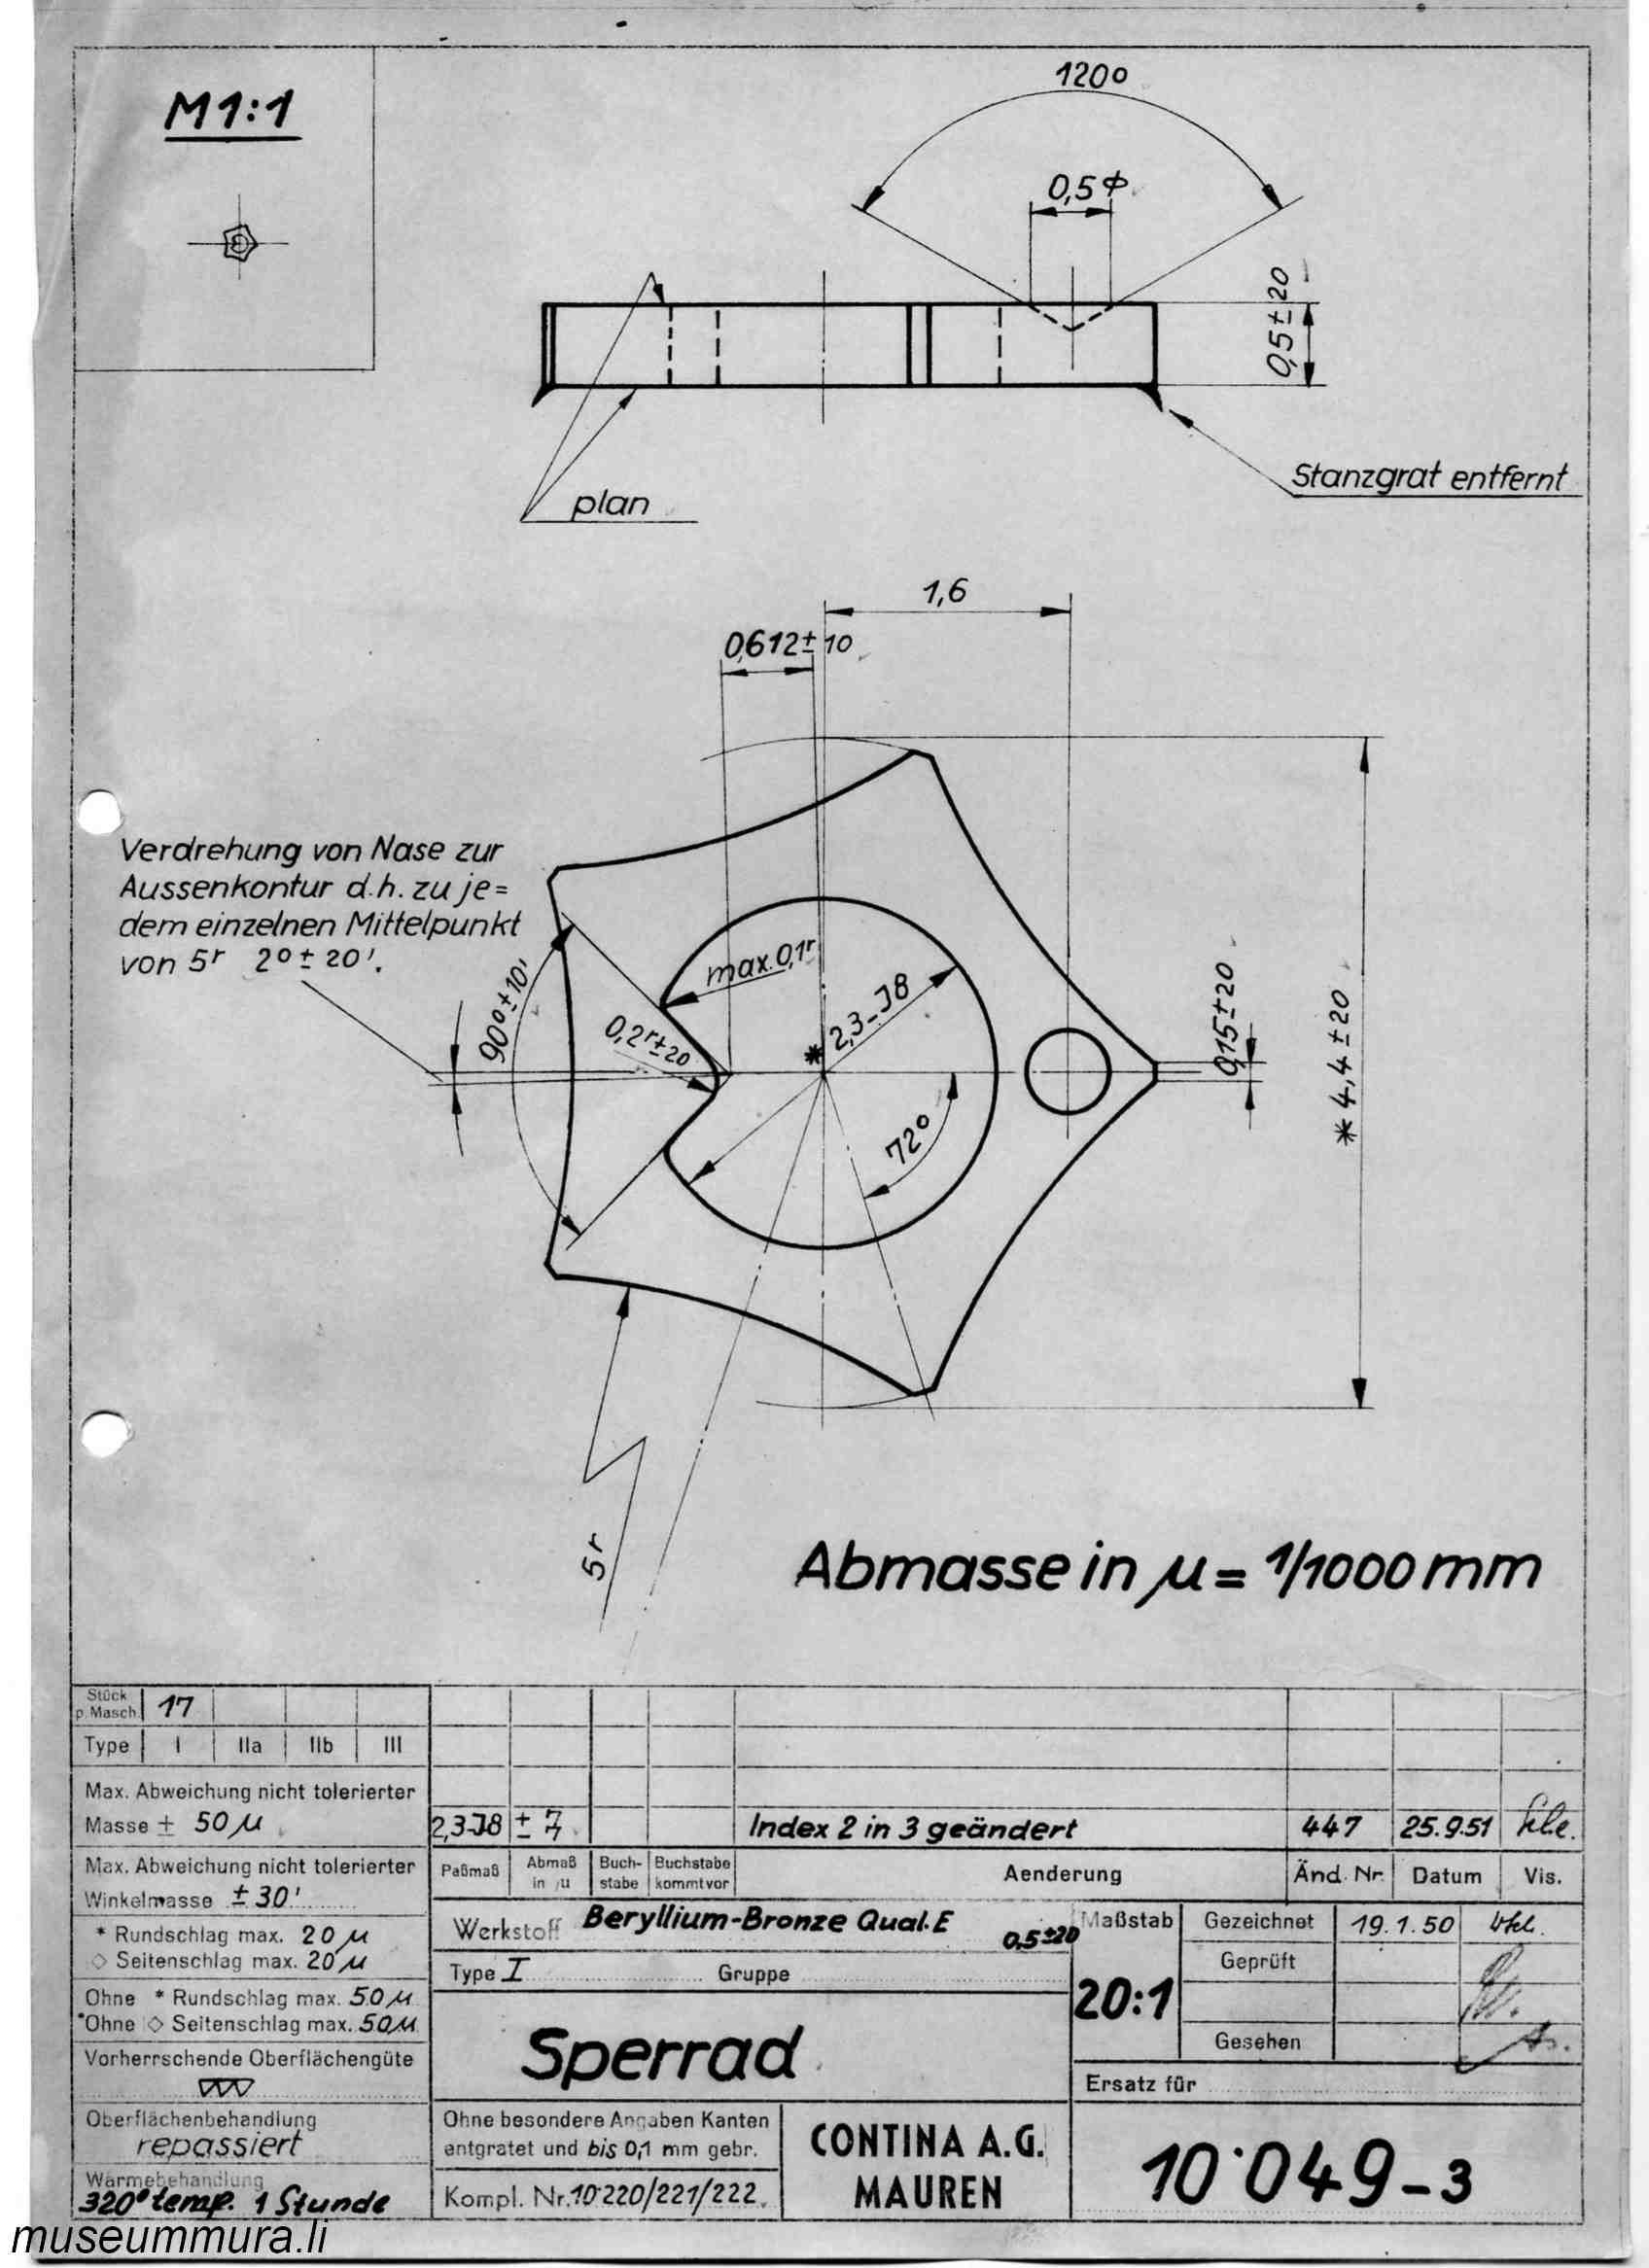 M 1:1
120°
0,5 ⌀
0,5 ± 20
plan
Stanzgrat entfernt
1,6
0,612 ± 10
Verdrehung von Nase zur
Aussenkontur d.h. zu je=
dem einzelnen Mittelpunkt
von 5r 2° ± 20'.
90° ± 10'
max. 0,1r
0,2r ± 20
* 2,3-J8
72°
0,15 ± 20
* 4,4 ± 20
5r
Abmasse in µ = 1/1000 mm
Stück
p. Masch. 17
Type I IIa IIb III
Max. Abweichung nicht tolerierter
Masse ± 50 µ
Max. Abweichung nicht tolerierter
Winkelmasse ± 30'
* Rundschlag max. 20 µ
◇ Seitenschlag max. 20 µ
Ohne * Rundschlag max. 50 µ
Ohne ◇ Seitenschlag max. 50 µ
Vorherrschende Oberflächengüte
▽▽▽
Oberflächenbehandlung
repassiert
Wärmebehandlung
320° temp. 1 Stunde
2,3J8 ± 7 Index 2 in 3 geändert 447 25.9.51
Paßmaß Abmaß in µ Buch-stabe Buchstabe kommt vor Aenderung Änd. Nr. Datum Vis.
Werkstoff Beryllium-Bronze Qual. E 0,5 ± 20
Type I Gruppe
Sperrad
Maßstab
20:1
Gezeichnet 19.1.50
Geprüft
Gesehen
Ersatz für
Ohne besondere Angaben Kanten
entgratet und bis 0,1 mm gebr.
Kompl. Nr. 10·220/221/222
CONTINA A.G.
MAUREN
10·049-3
museummura.li